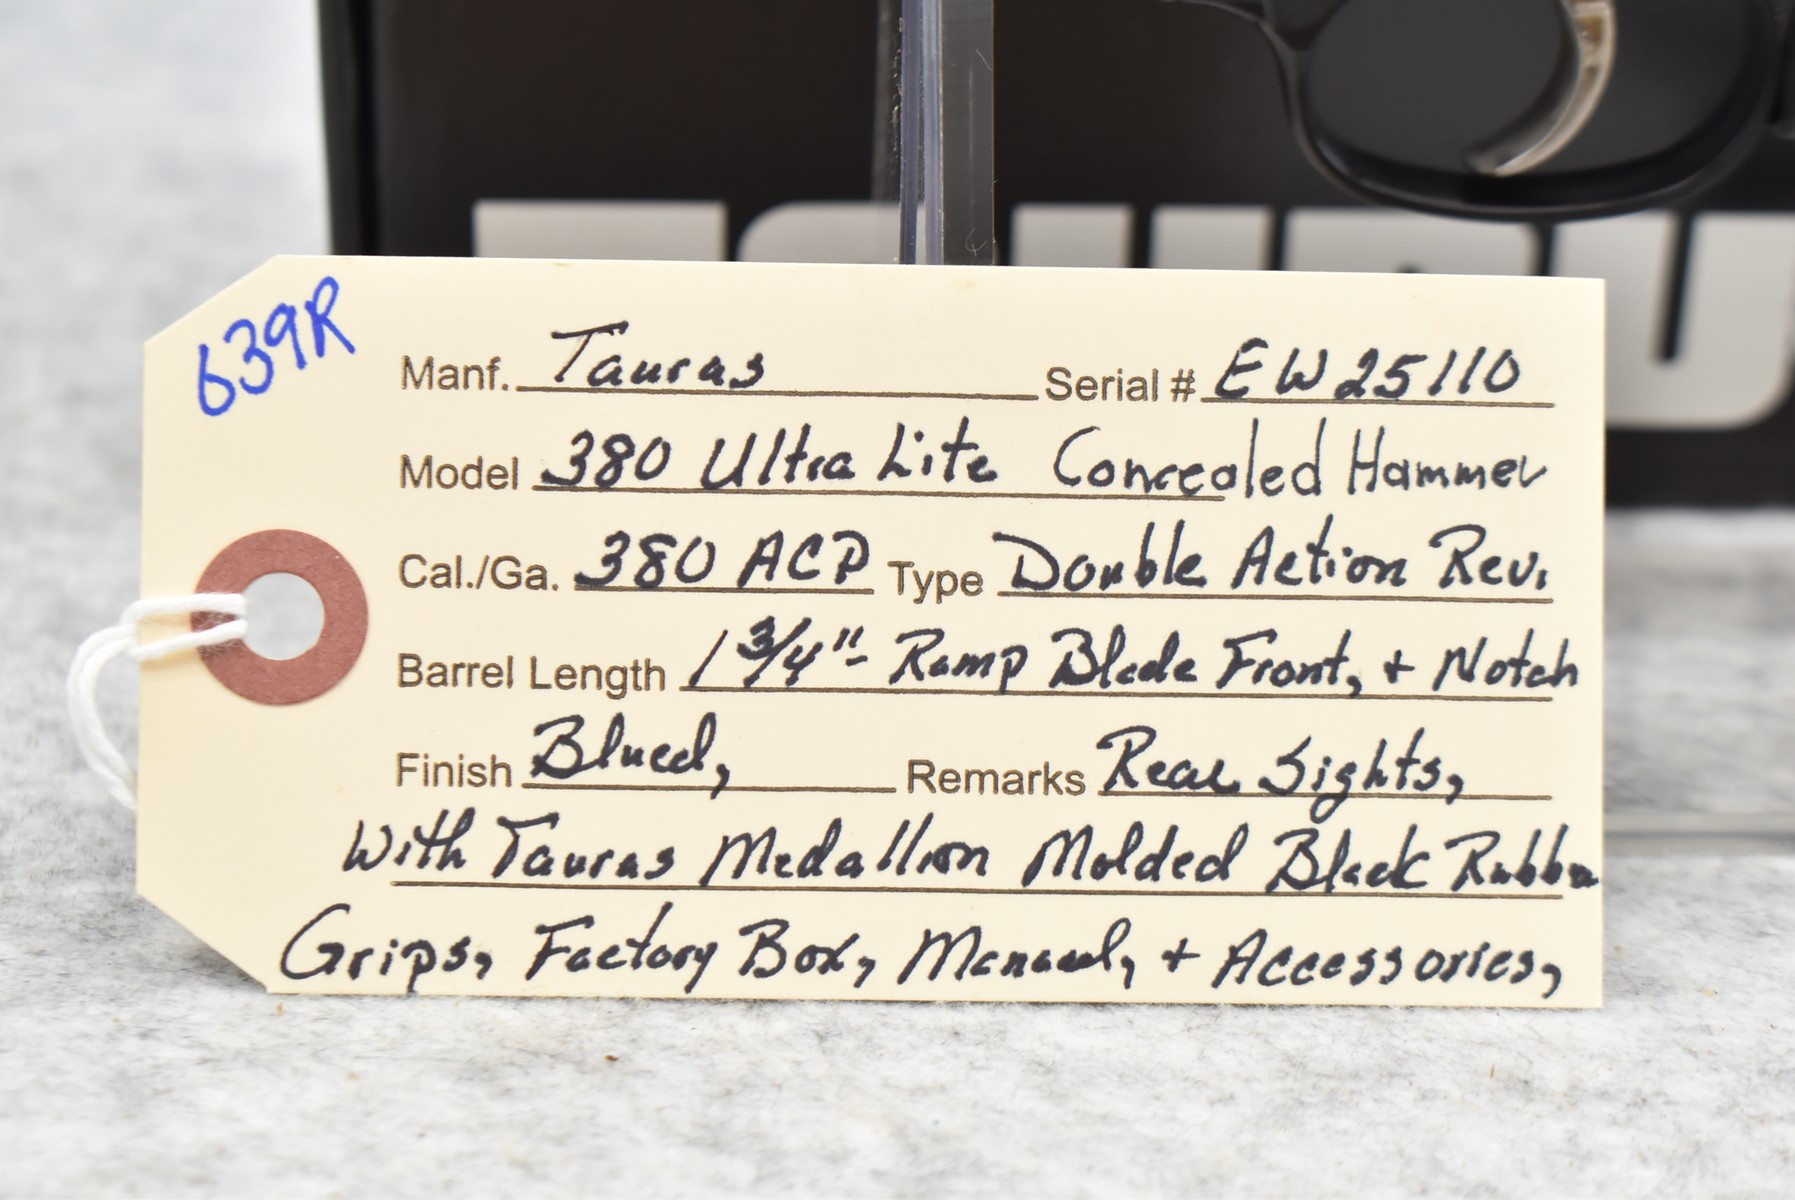 TAURU
639R
Manf. Tauras Serial # EW25110
Model 380 Ultra Lite Concealed Hammer
Cal./Ga. 380 ACP Type Double Action Rev.
Barrel Length 1 3/4"- Ramp Blade Front, + Notch
Finish Blued, Remarks Rear Sights,
With Tauras Medallion Molded Black Rubber
Grips, Factory Box, Manual, + Accessories,